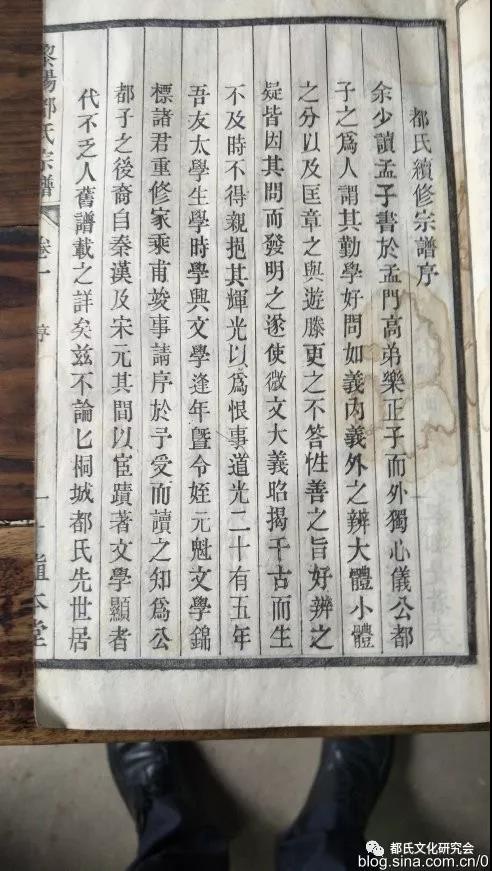 都氏續修宗譜序
余少讀孟子書於孟門高弟樂正子而外獨心儀公都
子之爲人謂其勤學好問如義內義外之辨大體小體
之分以及匡章之與遊滕更之不答性善之旨好辨之
疑皆因其問而發明之遂使微文大義昭揭千古而生
不及時不得親挹其輝光以爲恨事道光二十有五年
吾友太學生學時學興文學逢年暨令姪元魁文學錦
標諸君重修家乘甫竣事請序於予受而讀之知爲公
都子之後裔自秦漢及宋元其間以宦蹟著文學顯者
代不乏人舊譜載之詳矣兹不論匕桐城都氏先世居
黎陽都氏宗譜
卷一
序
一
植本堂
都氏文化研究会
blog.sina.com.cn/0